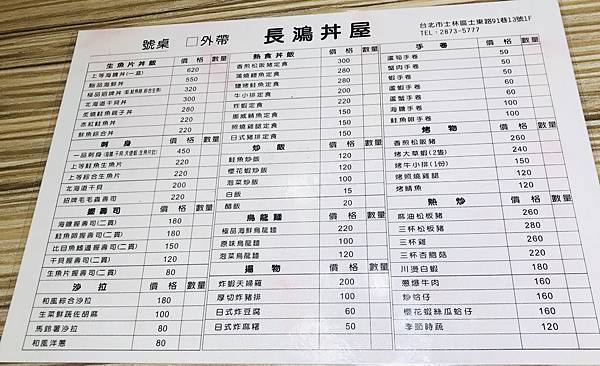 號桌 □外帶 長鴻丼屋
台北市士林區士東路91巷13號1F
TEL：2873-5777
生魚片丼飯 價格 數量
上等海膽丼(一盒) 620
極品海鮮丼 550
320
北海道干貝丼 300
炙燒鮭魚親子丼 280
赤紅鮭魚丼 220
鮭魚綜合丼 220
刺身 價格 數量
一品刺身 450
上等鮭魚生魚片 220
上等綜合生魚片 220
北海道干貝 200
招牌毛毛蟲壽司 220
握壽司 價格 數量
海膽握壽司(二貫) 180
鮭魚卵握壽司(二貫) 180
比目魚鰭邊握壽司(二貫) 150
干貝握壽司(二貫) 120
生魚片握壽司(二貫) 80
沙拉 價格 數量
和風綜合沙拉 180
生菜鮮蔬佐胡麻 100
馬鈴薯沙拉 80
和風洋蔥 80
熱食丼飯 價格 數量
香煎松板豬定食 300
蒲燒鰻魚定食 280
鹽烤鮭魚定食 280
牛小排定食 280
炸蝦定食 200
挪威鯖魚定食 150
照燒雞腿定食 150
日式豬排定食 150
炒飯 價格 數量
鮭魚炒飯 120
櫻花蝦炒飯 120
泡菜炒飯 120
白飯 15
醋飯 20
烏龍麵 價格 數量
極品海鮮烏龍麵 220
原味烏龍麵 100
泡菜烏龍麵 120
揚物 價格 數量
炸蝦天婦羅 200
厚切炸豬排 100
日式炸豆腐 60
日式炸麻糬 50
手卷 價格 數量
蘆筍手卷 50
蟹肉手卷 50
蝦手卷 50
蘆蝦手卷 60
蘆蟹手卷 60
海膽手卷 100
鮭魚卵手卷 100
烤物 價格 數量
香煎松板豬 260
烤大草蝦(2隻) 240
烤牛小排(1份) 150
烤照燒雞腿 120
烤鯖魚 120
熱炒 價格 數量
麻油松板豬 260
三杯松板豬 260
三杯雞 260
三杯杏鮑菇 220
川燙白蝦 180
蔥爆牛肉 160
炒蛤仔 160
櫻花蝦絲瓜蛤仔 160
季節時蔬 120